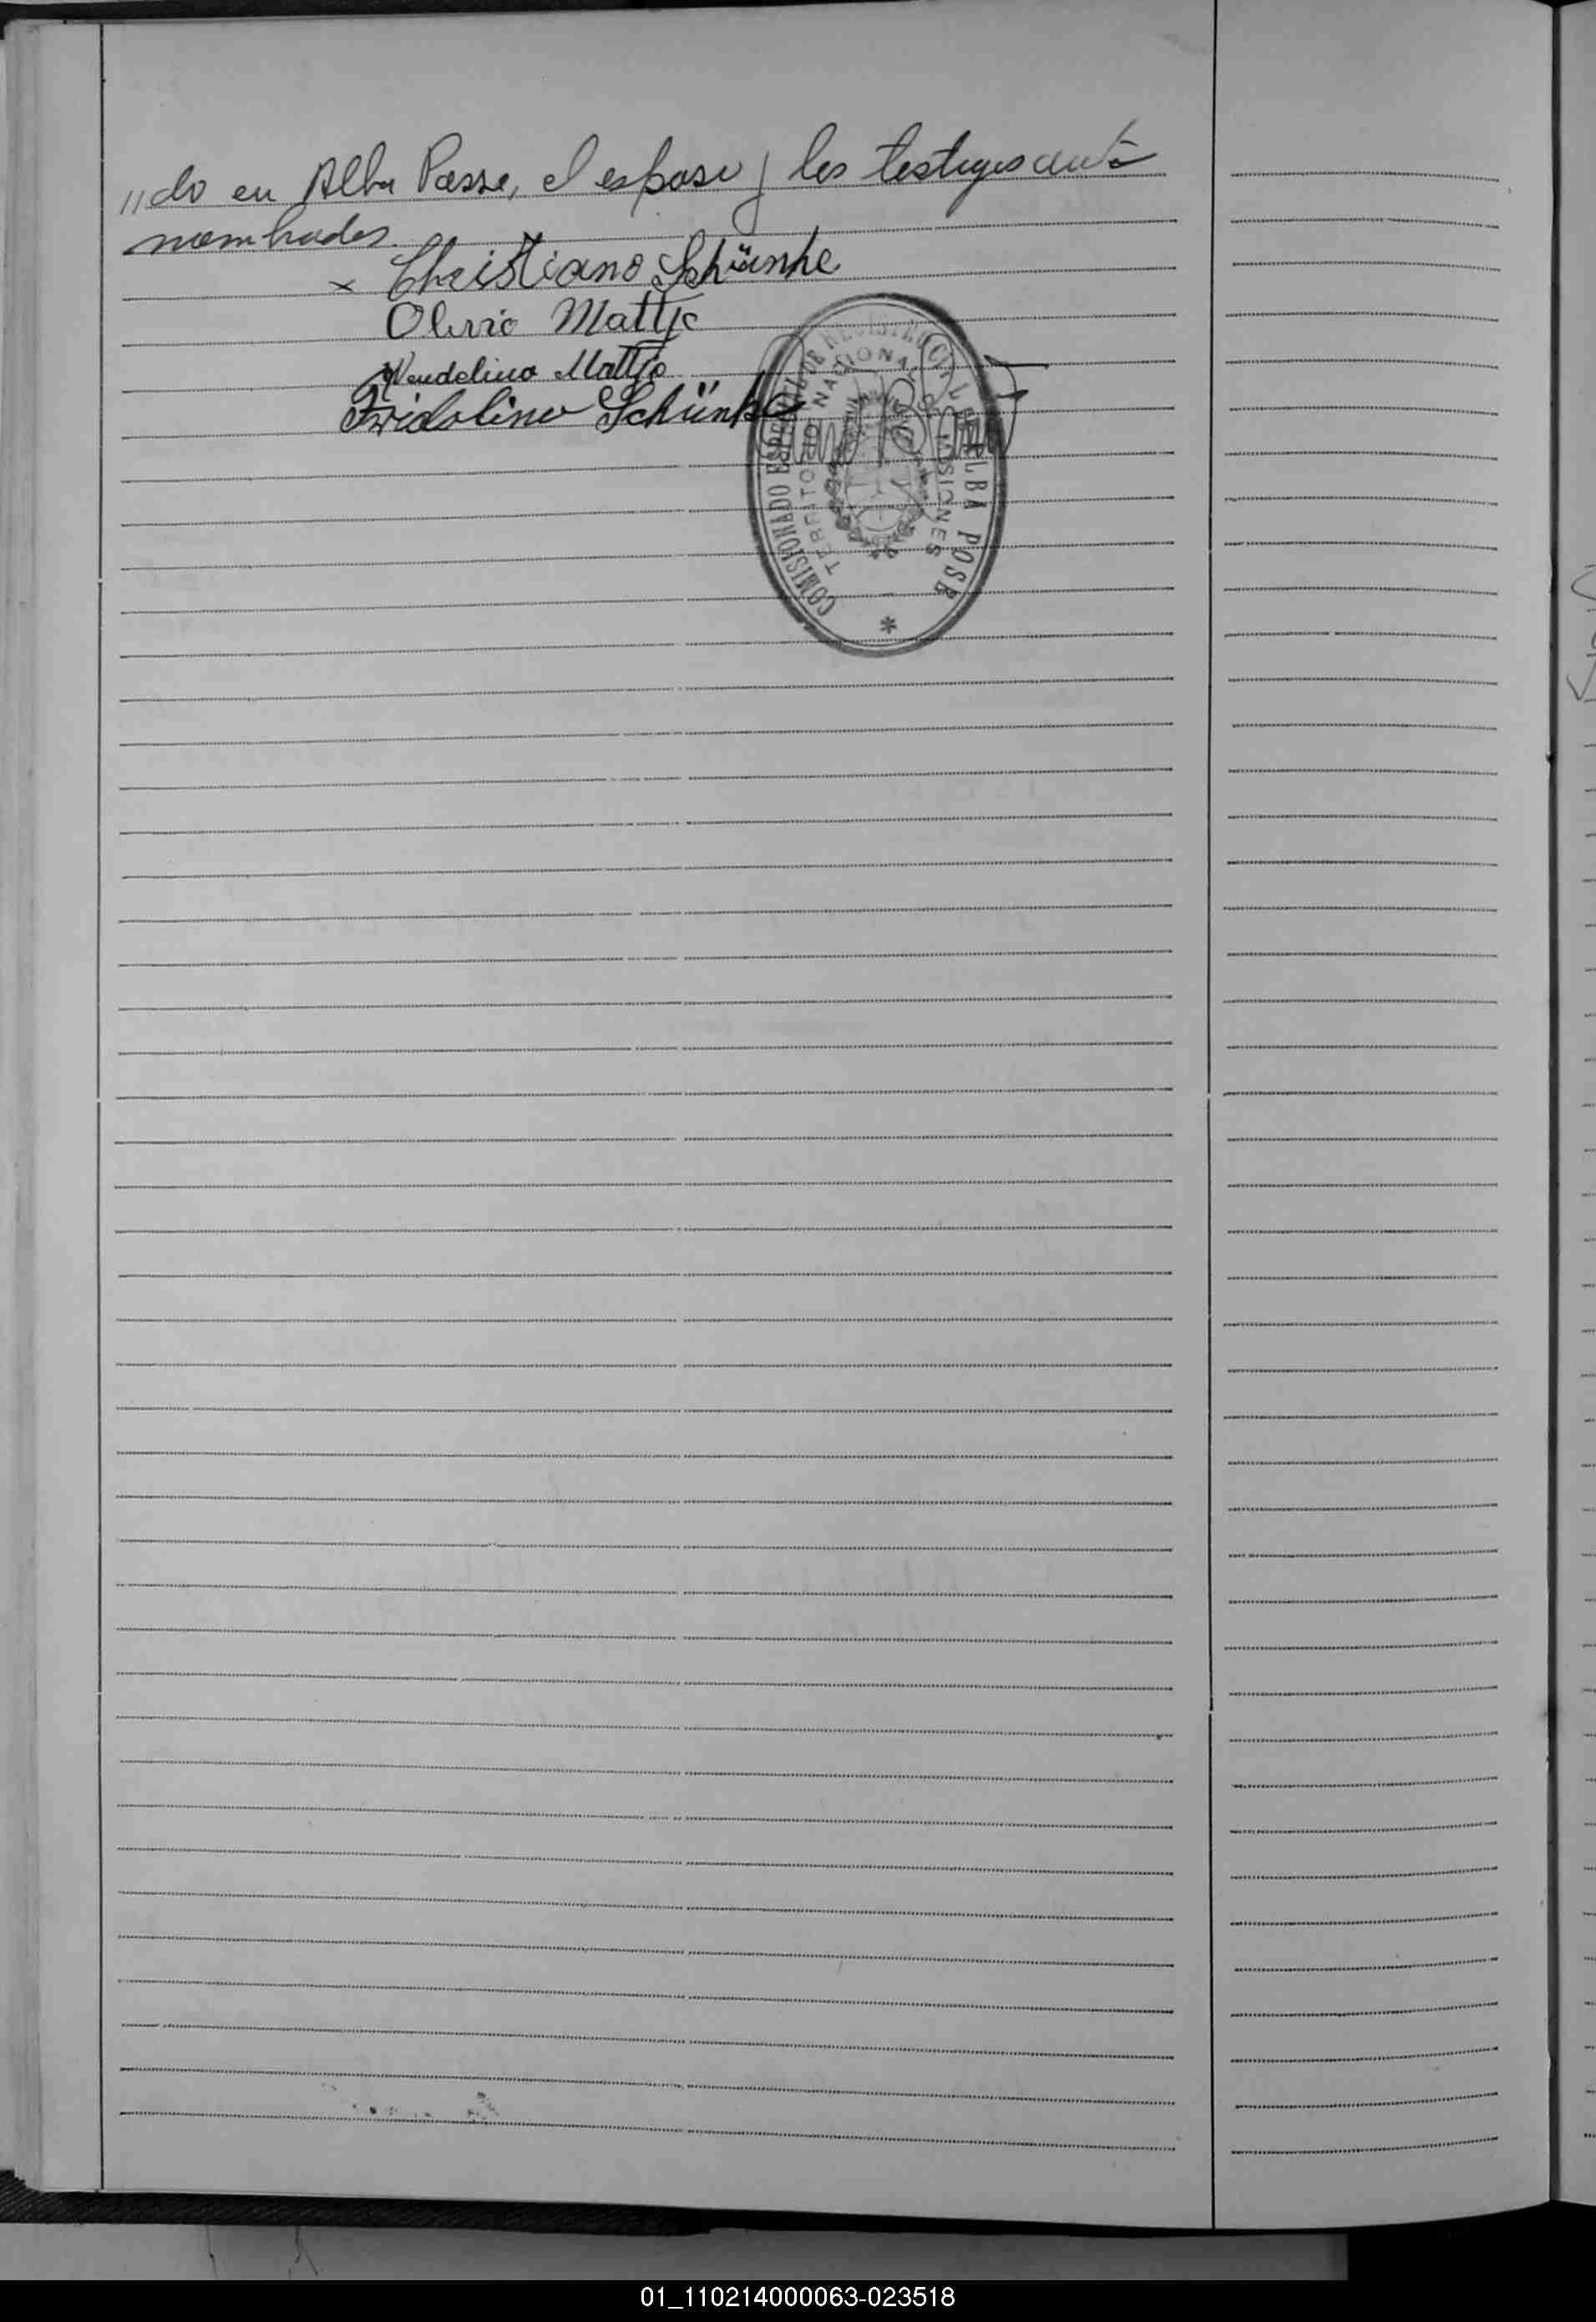 //do en Alba Posse, el esposo y los testigos antes
nombrados.
x Christiano Schünke
Olivio Mattje
Wendelino Mattjo
Fridolino Schünke
COMISIONADO ESPECIAL DE REGISTRO CIVIL ALBA POSE
TERRITORIO NACIONAL DE MISIONES
*
01_110214000063-023518